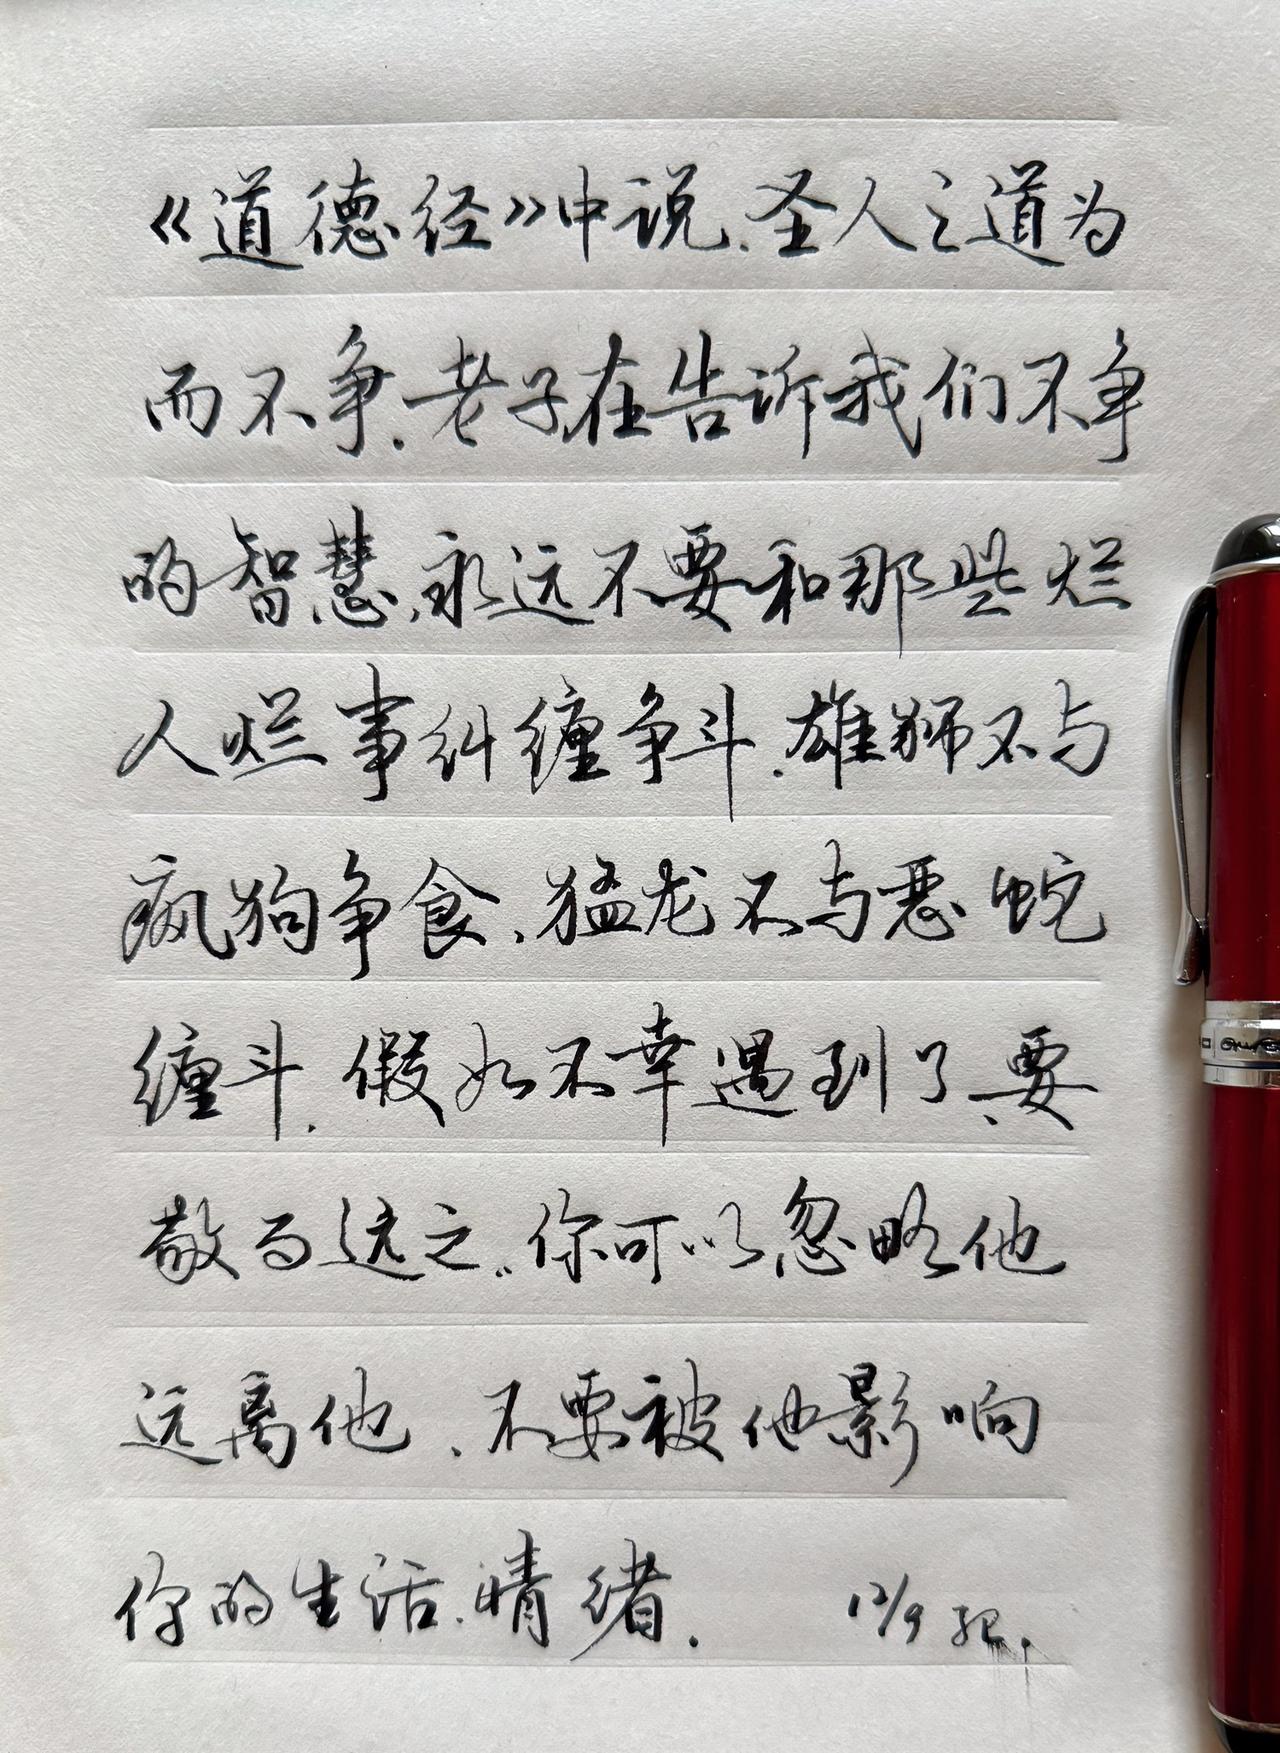 《道德经》中说.圣人之道为
而不争.老子在告诉我们不争
的智慧.永远不要和那些烂
人烂事纠缠争斗.雄狮不与
疯狗争食.猛龙不与恶蛇
缠斗.假如不幸遇到了、要
敬而远之..你可以忽略他
远离他.不要被他影响
你的生活.情绪.
12/9 记.